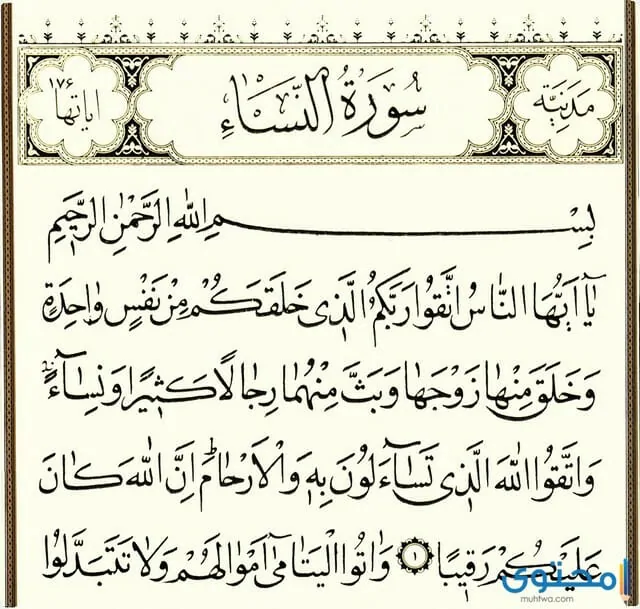 مَدَنِيَّة
سُورَةُ النِّسَاءِ
اياتها
١٧٦
بِسْمِ اللهِ الرَّحْمٰنِ الرَّحِيمِ
يَٓا اَيُّهَا النَّاسُ اتَّقُوا رَبَّكُمُ الَّذِى خَلَقَكُمْ مِنْ نَفْسٍ وَاحِدَةٍ
وَخَلَقَ مِنْهَا زَوْجَهَا وَبَثَّ مِنْهُمَا رِجَالًا كَثِيرًا وَنِسَٓاءً
وَاتَّقُوا اللهَ الَّذِى تَسَٓاءَلُونَ بِهِ وَالْاَرْحَامَ اِنَّ اللهَ كَانَ
عَلَيْكُمْ رَقِيبًا ١ وَاٰتُوا الْيَتَامٰىٓ اَمْوَالَهُمْ وَلَا تَتَبَدَّلُوا
محتوى
muhtwa.com